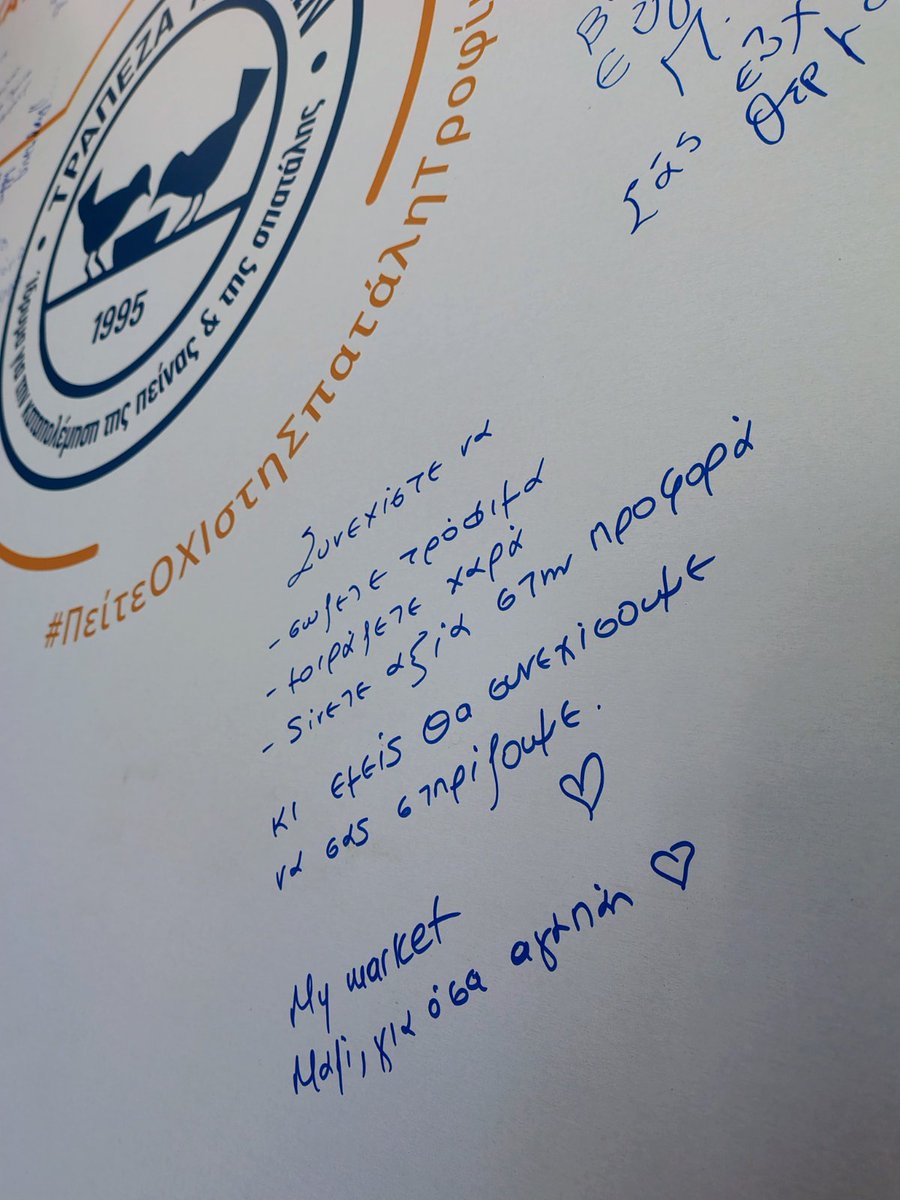 ΤΡΑΠΕΖΑ
1995
Ίδρυμα για την καταπολέμηση της πείνας & της σπατάλης
#ΠείτεΟΧΙστηΣπατάληΤροφί
Σάς
Συνεχίστε να
- σωζετε τρόφιμα
- μοιράζετε χαρά
- δίνετε αξία στην προσφορά
κι εμείς θα συνεχίσουμε
να σας στηρίζουμε.
My market
Μαζί, για όσα αγαπάς